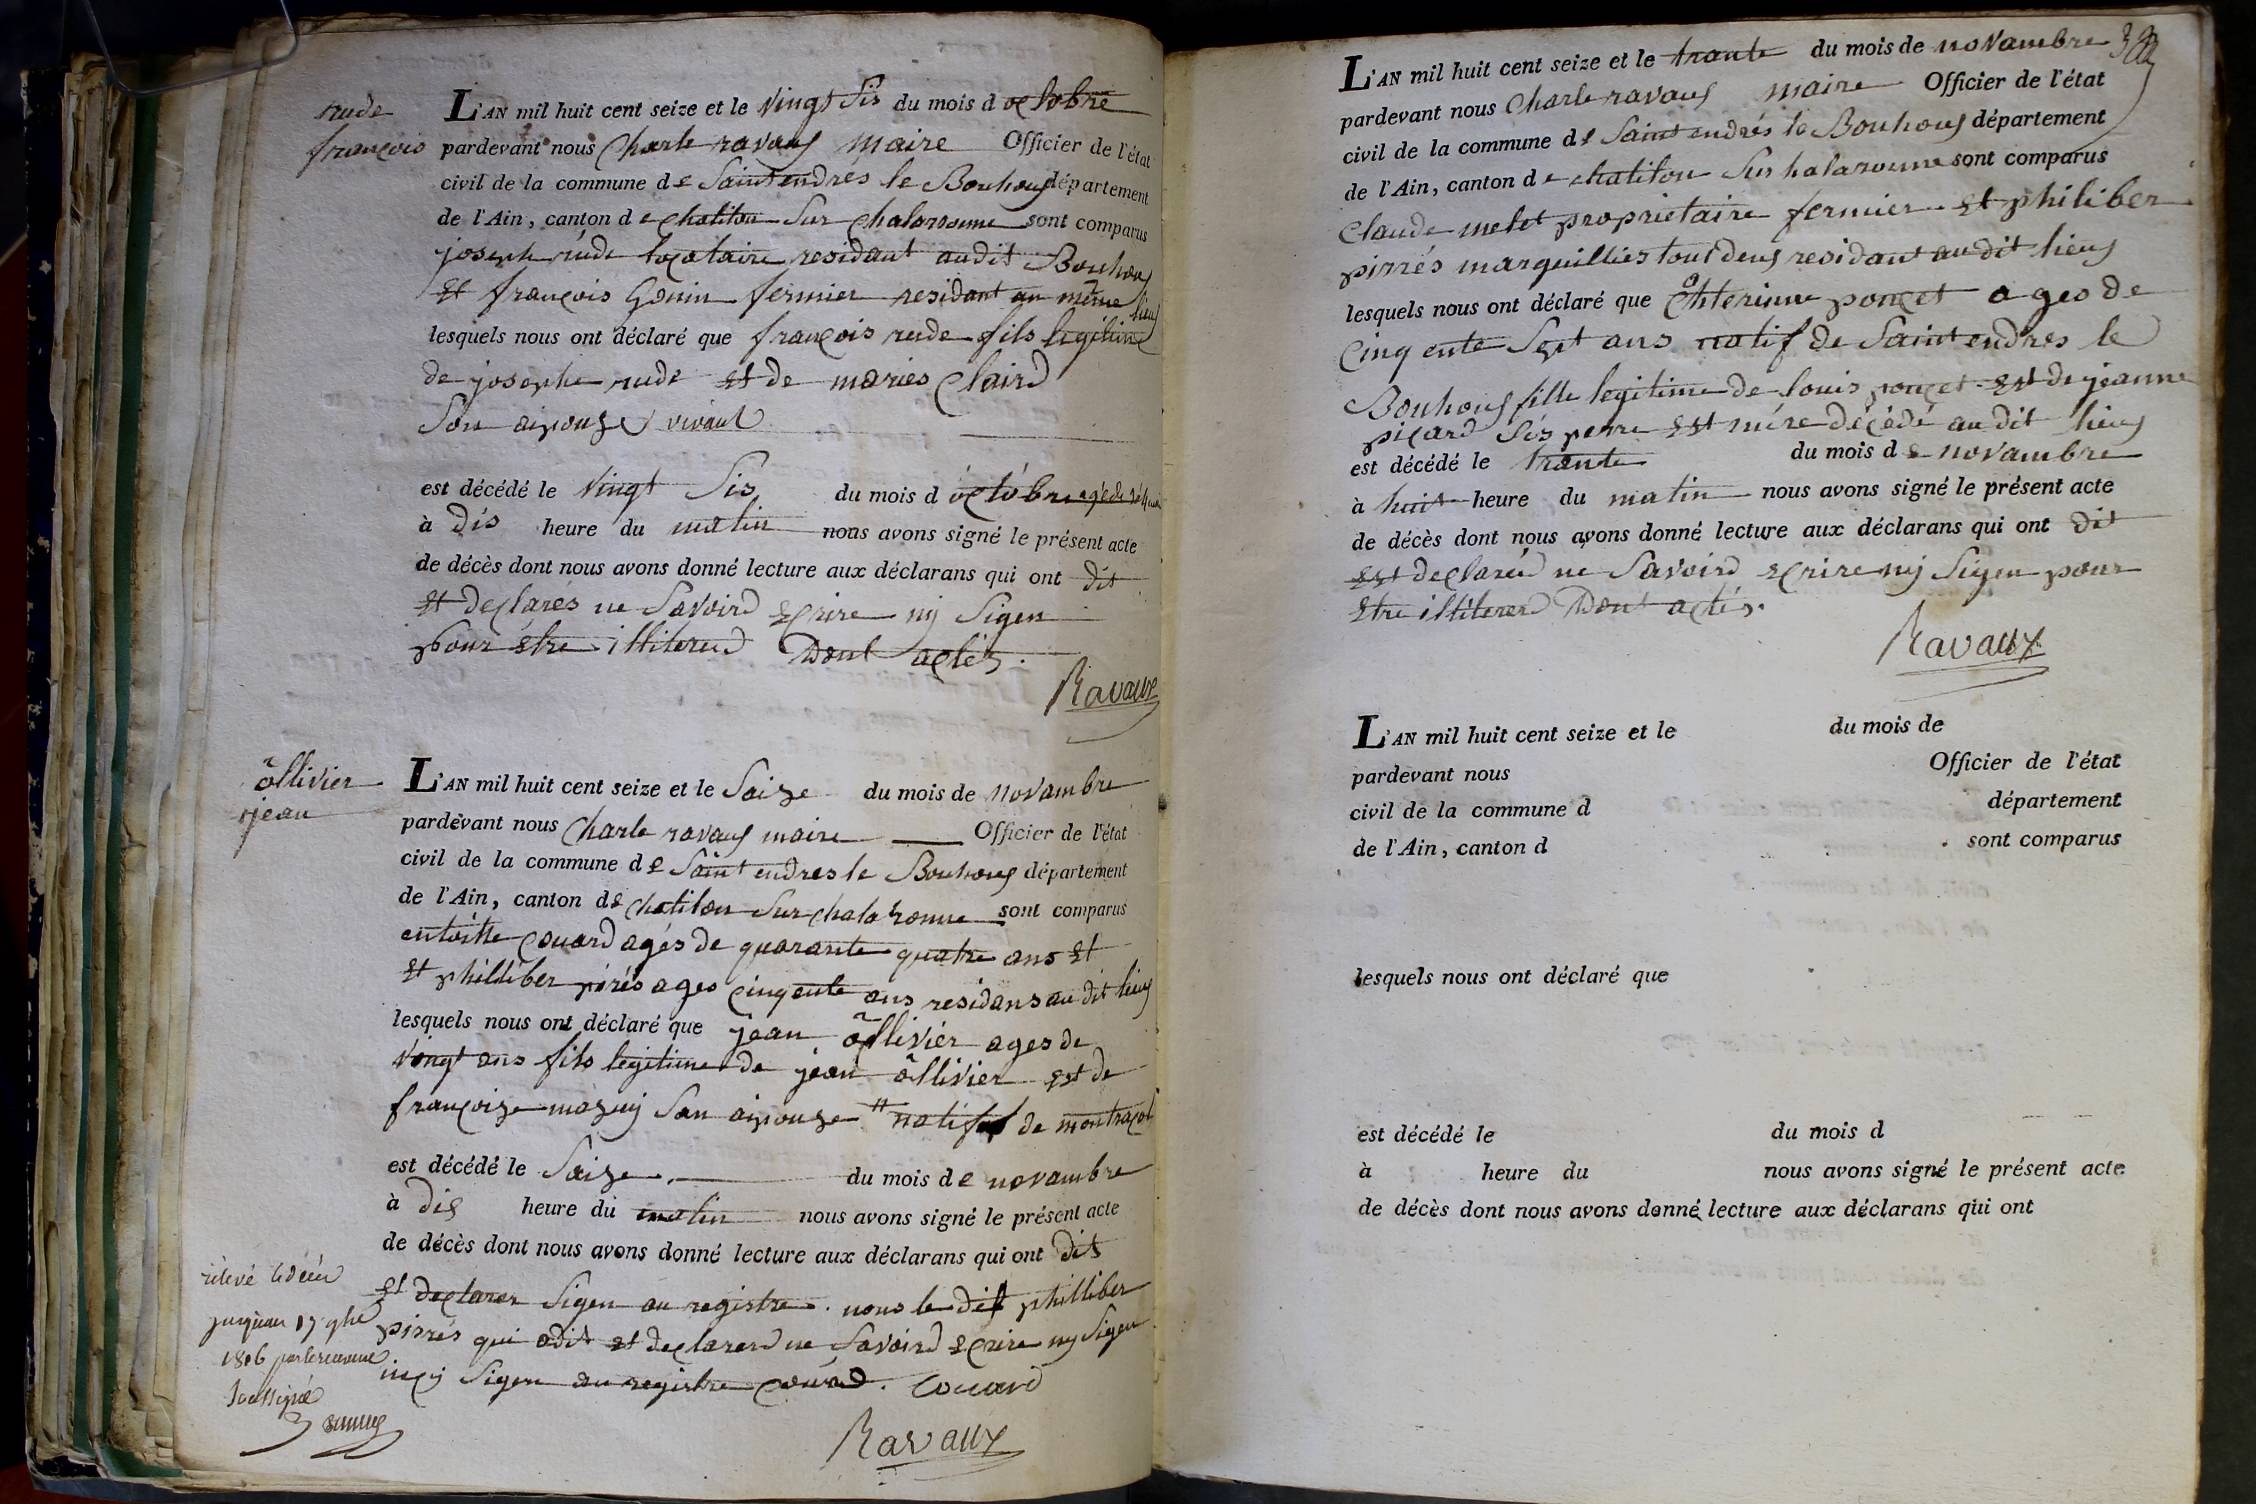 rude
françois
L'AN mil huit cent seize et le vingt sis du mois d octobre
pardevant nous Charle ravaux maire Officier de l'état
civil de la commune de Saint endres le Bouhoux département
de l'Ain, canton de chatilon Sur chalaronne sont comparus
joseph rude locataire residant audit Bouhoux
Et françois Gonin fermier residant au même lieux
lesquels nous ont déclaré que françois rude fils legitime
de josephe rude Et de maries Claird
Son aipouze vivant
est décédé le vingt Sis du mois d octobre agé de
à dis heure du matin nous avons signé le présent acte
de décès dont nous avons donné lecture aux déclarans qui ont dit
Et declarés ne Savoird Ecrire nij Sigen
pour être illitered Dont actés.
Ravaux
ôllivier
jean
L'AN mil huit cent seize et le Saize du mois de novambre
pardevant nous Charle ravaux maire Officier de l'état
civil de la commune de Saint endres le Bouhoux département
de l'Ain, canton de chatilon Sur chalaronne sont comparus
entoitte couard agés de quarante quatre ans Et
Et philliber pirés ages cinqente ans residans au dit lieux
lesquels nous ont déclaré que jean ôllivier ages de
vingt ans fils legitime de jean ôllivier est de
françoize mazuij San aipouze natif de montraçol
est décédé le Saize. du mois de novambre
à dis heure du matin nous avons signé le présent acte
de décès dont nous avons donné lecture aux déclarans qui ont dit
Et declarer Sigen au registre. nous le dit philliber
pirrés qui a dit Et declarerd ne Savoird Ecrire nij Sigen
Sigen au registre couard. Couard
Ravaux
relevé le décès
jusqu'au 17 9bre
1806 par le
soussigné
L'AN mil huit cent seize et le trante du mois de novambre
pardevant nous Charle ravaux maire Officier de l'état
civil de la commune de Saint endrés le Bouhoux département
de l'Ain, canton de chatilon Sur halaronne sont comparus
Claude melet proprietaire fermier Et philiber
pirrés marquillier tout deux residant audit lieux
lesquels nous ont déclaré que poncet ages de
Cinq ente Sept ans natif de Saint endres le
Bouhoux fille legitime de louis poncet Est de jeanne
picard Ses perre Est mére décédé au dit lieux
est décédé le trante du mois de novambre
à huit heure du matin nous avons signé le présent acte
de décès dont nous avons donné lecture aux déclarans qui ont dit
Est declared ne Savoird Ecrire nij Sigen pour
Etre illiterer Dont actés.
Ravaux
L'AN mil huit cent seize et le du mois de
pardevant nous Officier de l'état
civil de la commune d département
de l'Ain, canton d sont comparus
lesquels nous ont déclaré que
est décédé le du mois d
à heure du nous avons signé le présent acte
de décès dont nous avons donné lecture aux déclarans qui ont